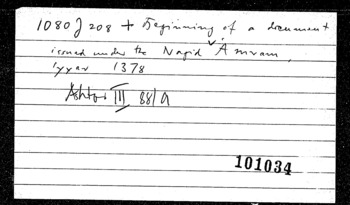 1080 J 208 + Beginning of a document
issued under the Nagid ʿAmram,
Iyyar 1378
Ashtor III 88/9
101034